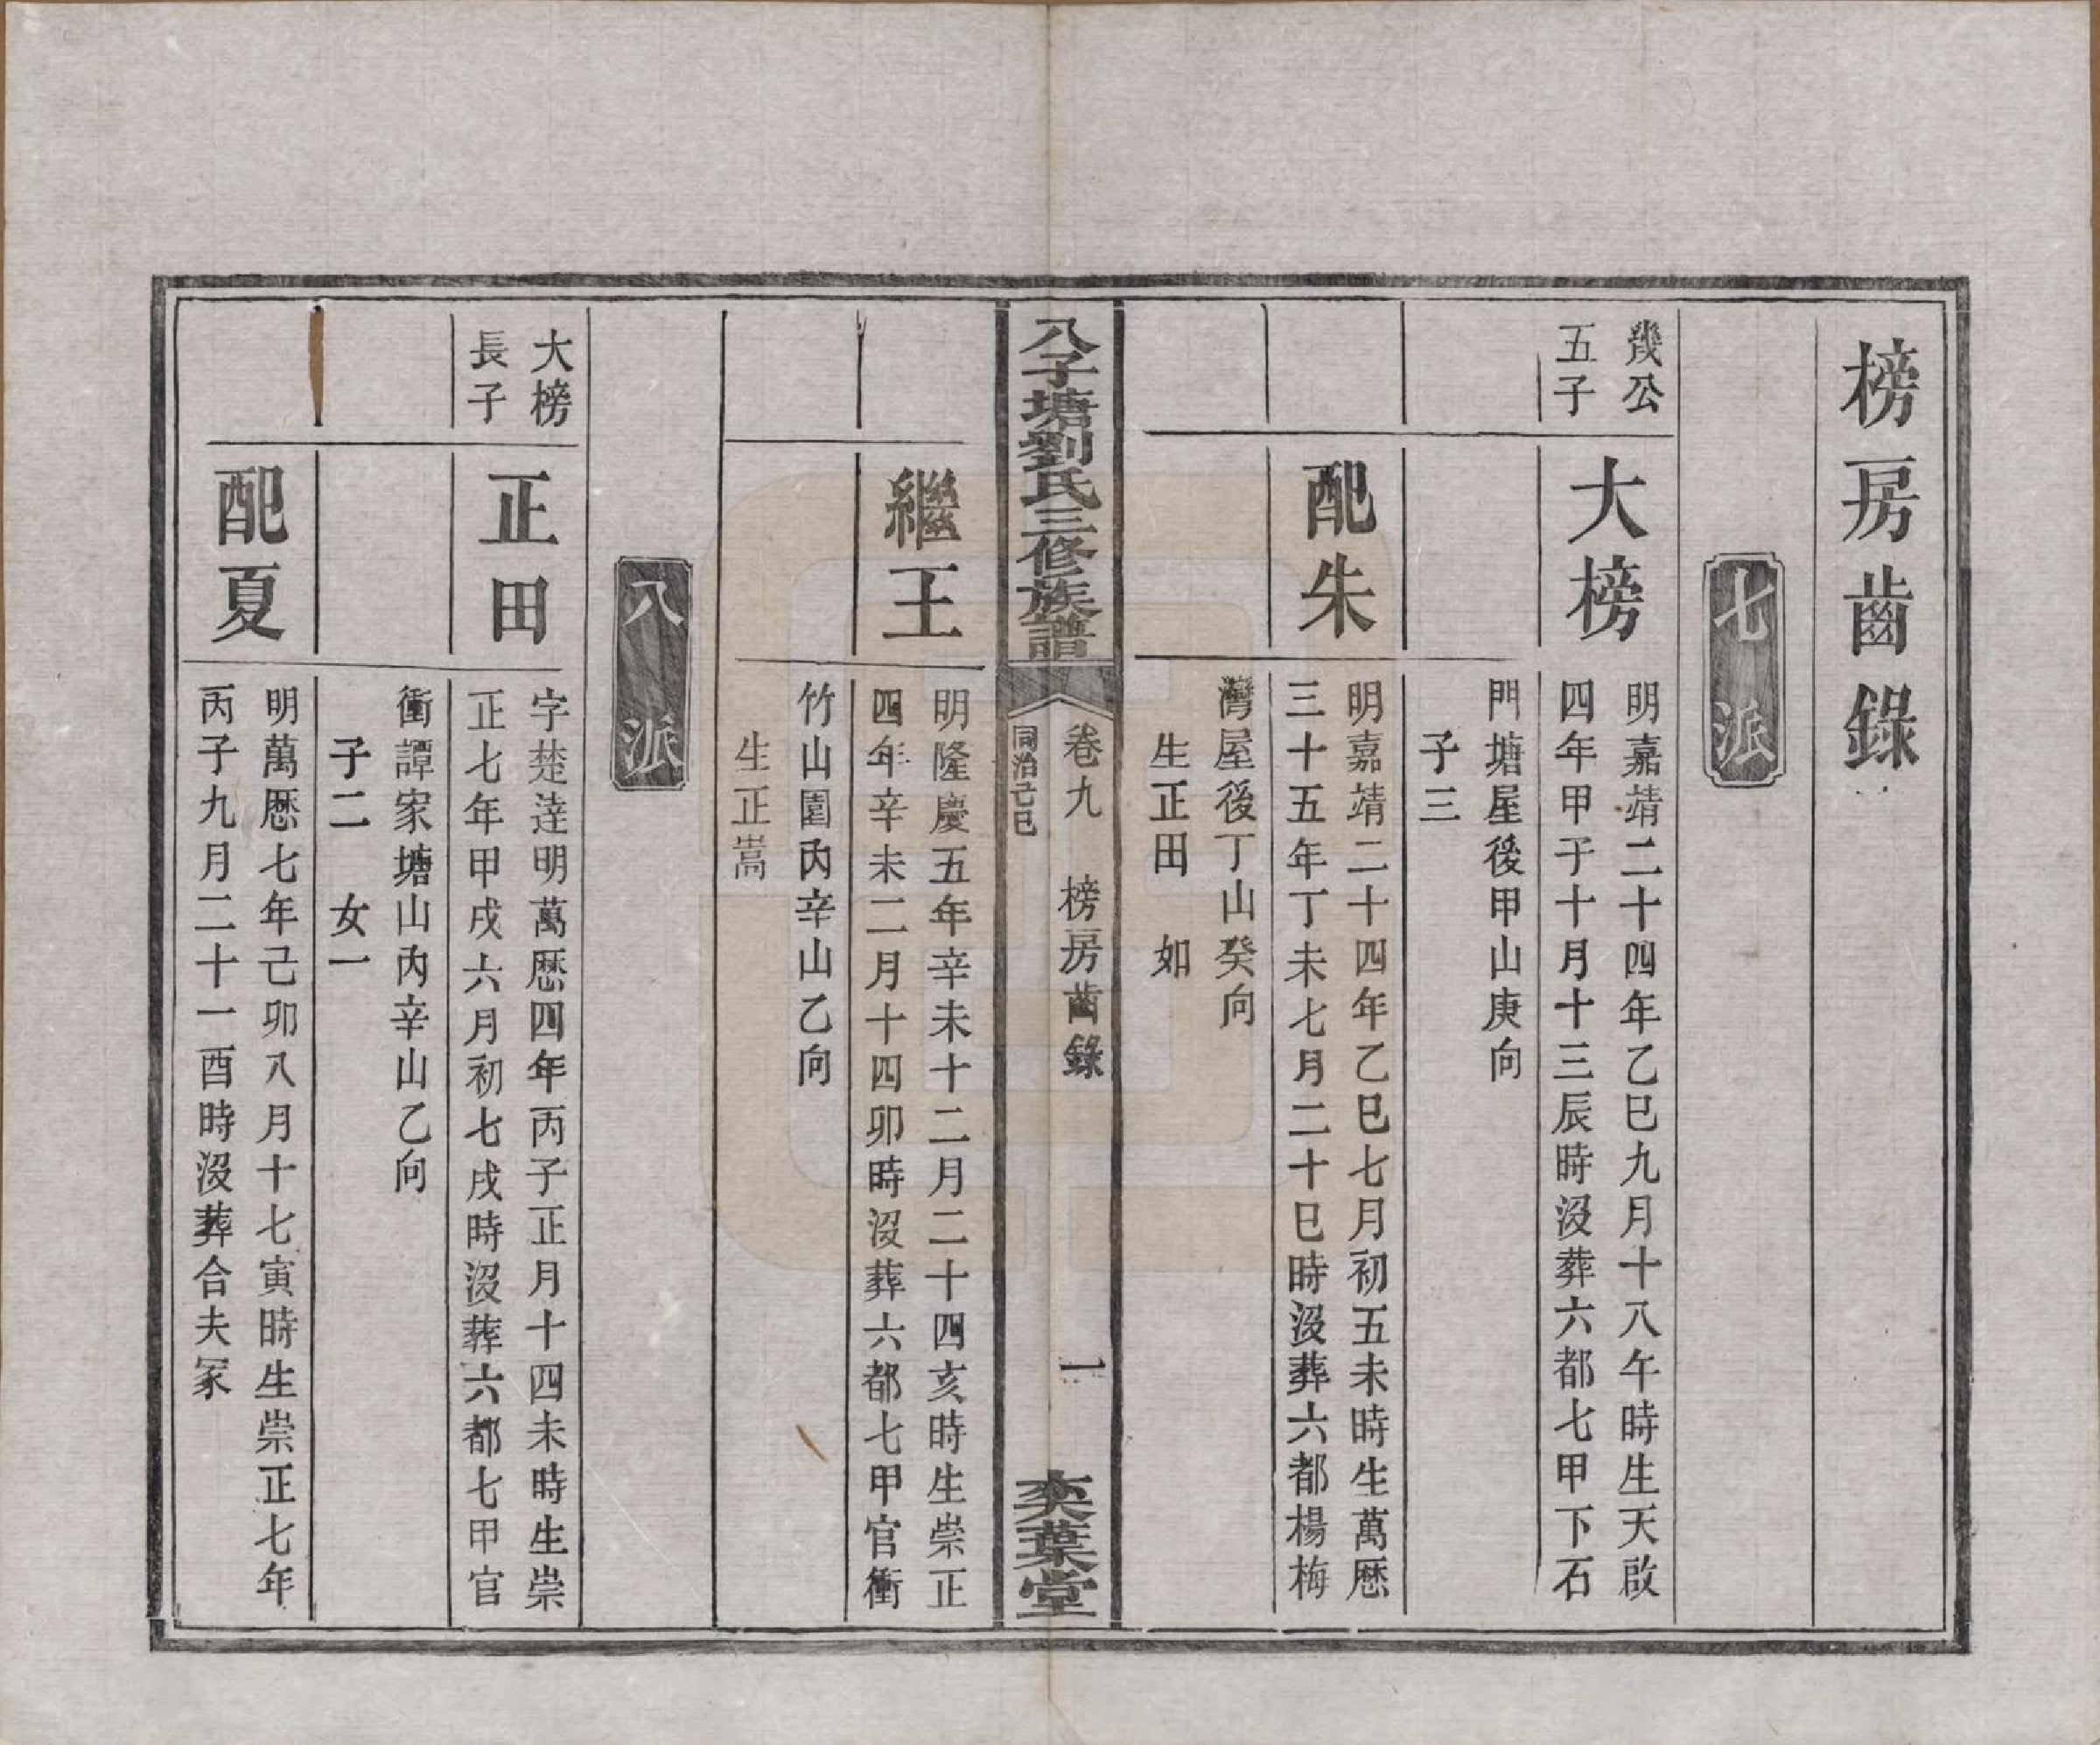 榜房齒錄
七派
幾公
五子
大榜
明嘉靖二十四年乙巳九月十八午時生天啟
四年甲子十月十三辰時沒葬六都七甲下石
門塘屋後甲山庚向
子三
配朱
明嘉靖二十四年乙巳七月初五未時生萬歷
三十五年丁未七月二十巳時沒葬六都楊梅
灣屋後丁山癸向
生正田　如
八子塘劉氏三修族譜
卷九　榜房齒錄　一
同治己巳
奕葉堂
繼王
明隆慶五年辛未十二月二十四亥時生崇正
四年辛未二月十四卯時沒葬六都七甲官衝
竹山園內辛山乙向
生正嵩
八派
大榜
長子
正田
字楚達明萬歷四年丙子正月十四未時生崇
正七年甲戌六月初七戌時沒葬六都七甲官
衝譚家塘山內辛山乙向
子二　女一
配夏
明萬歷七年己卯八月十七寅時生崇正七年
丙子九月二十一酉時沒葬合夫冢